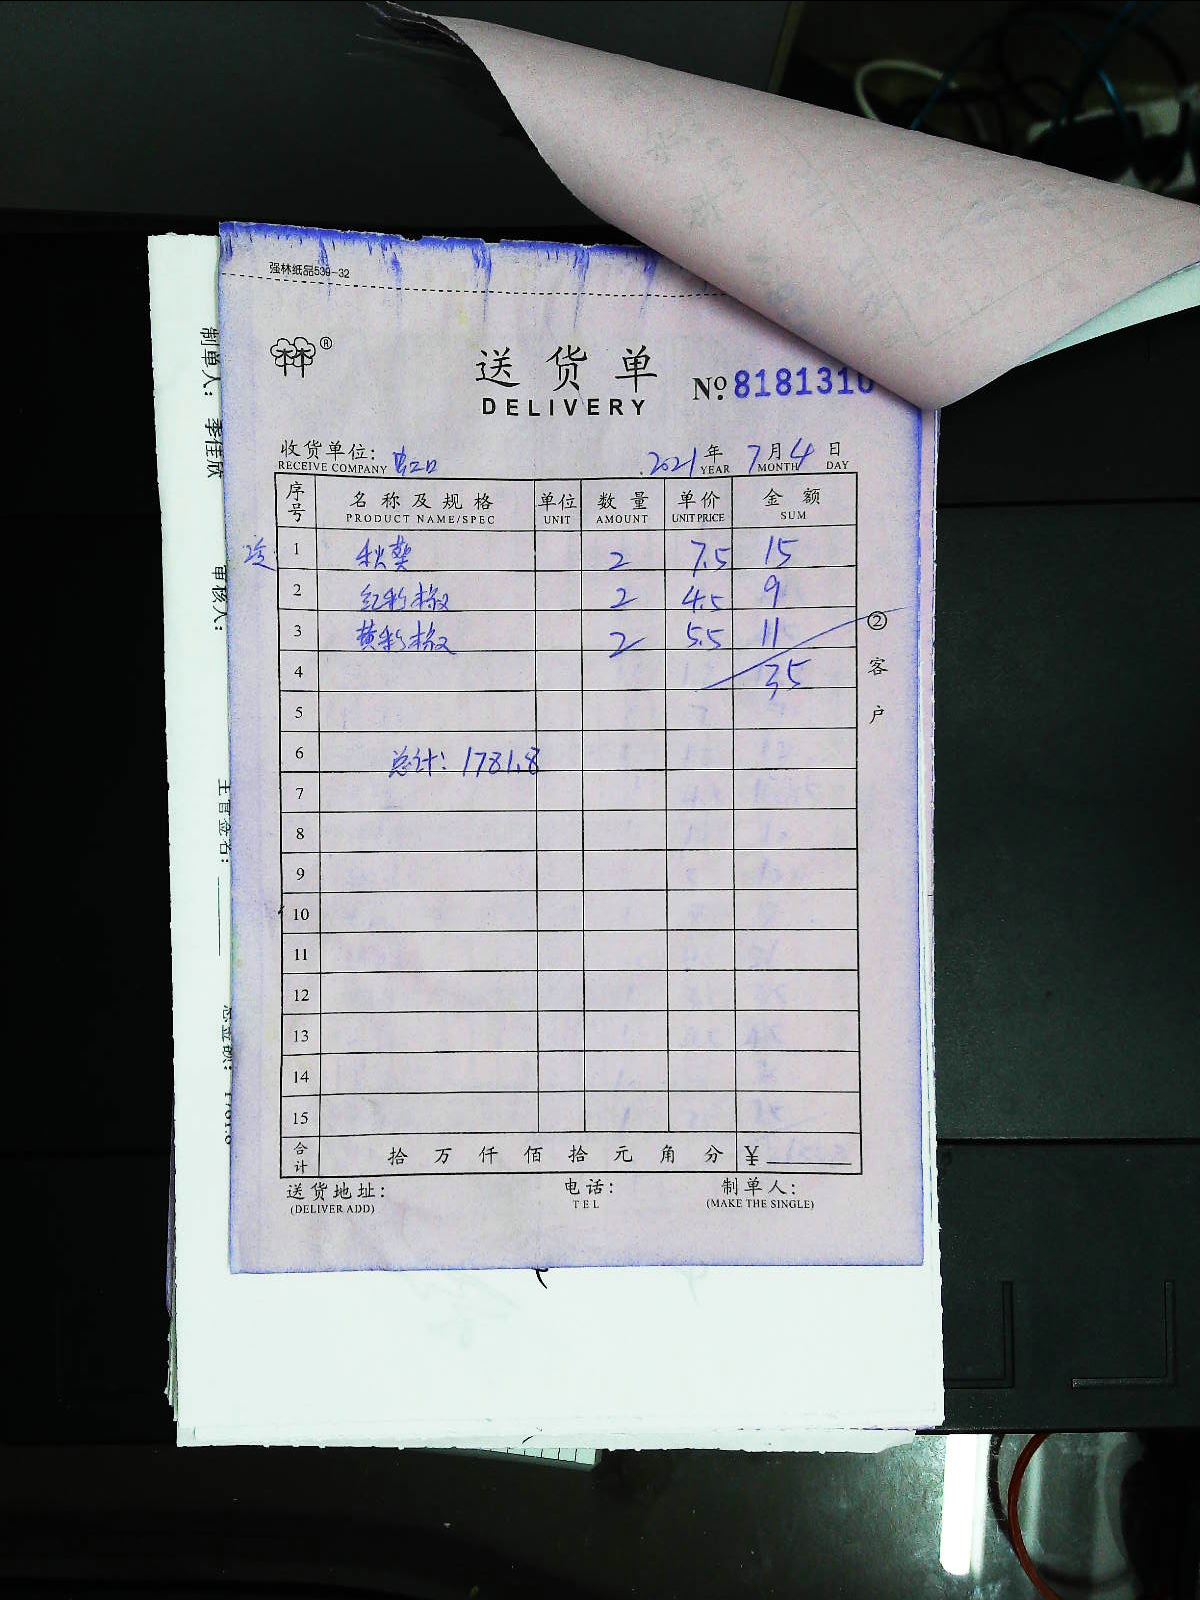 强林纸品539-32
林®
送货单
DELIVERY
No. 8181310
收货单位: 虹口
RECEIVE COMPANY
2021年 7月 4日
YEAR MONTH DAY
序号 名称及规格 单位 数量 单价 金额
PRODUCT NAME/SPEC UNIT AMOUNT UNIT PRICE SUM
1 秋葵 2 7.5 15
2 红彩椒 2 4.5 9
3 黄彩椒 2 5.5 11
4 35
5
6 总计: 1781.8
7
8
9
10
11
12
13
14
15
合计 拾 万 仟 佰 拾 元 角 分 ¥
送货地址: 电话: 制单人:
(DELIVER ADD) TEL (MAKE THE SINGLE)
②客户
制单人: 李佳欣
审核人:
主管签名: